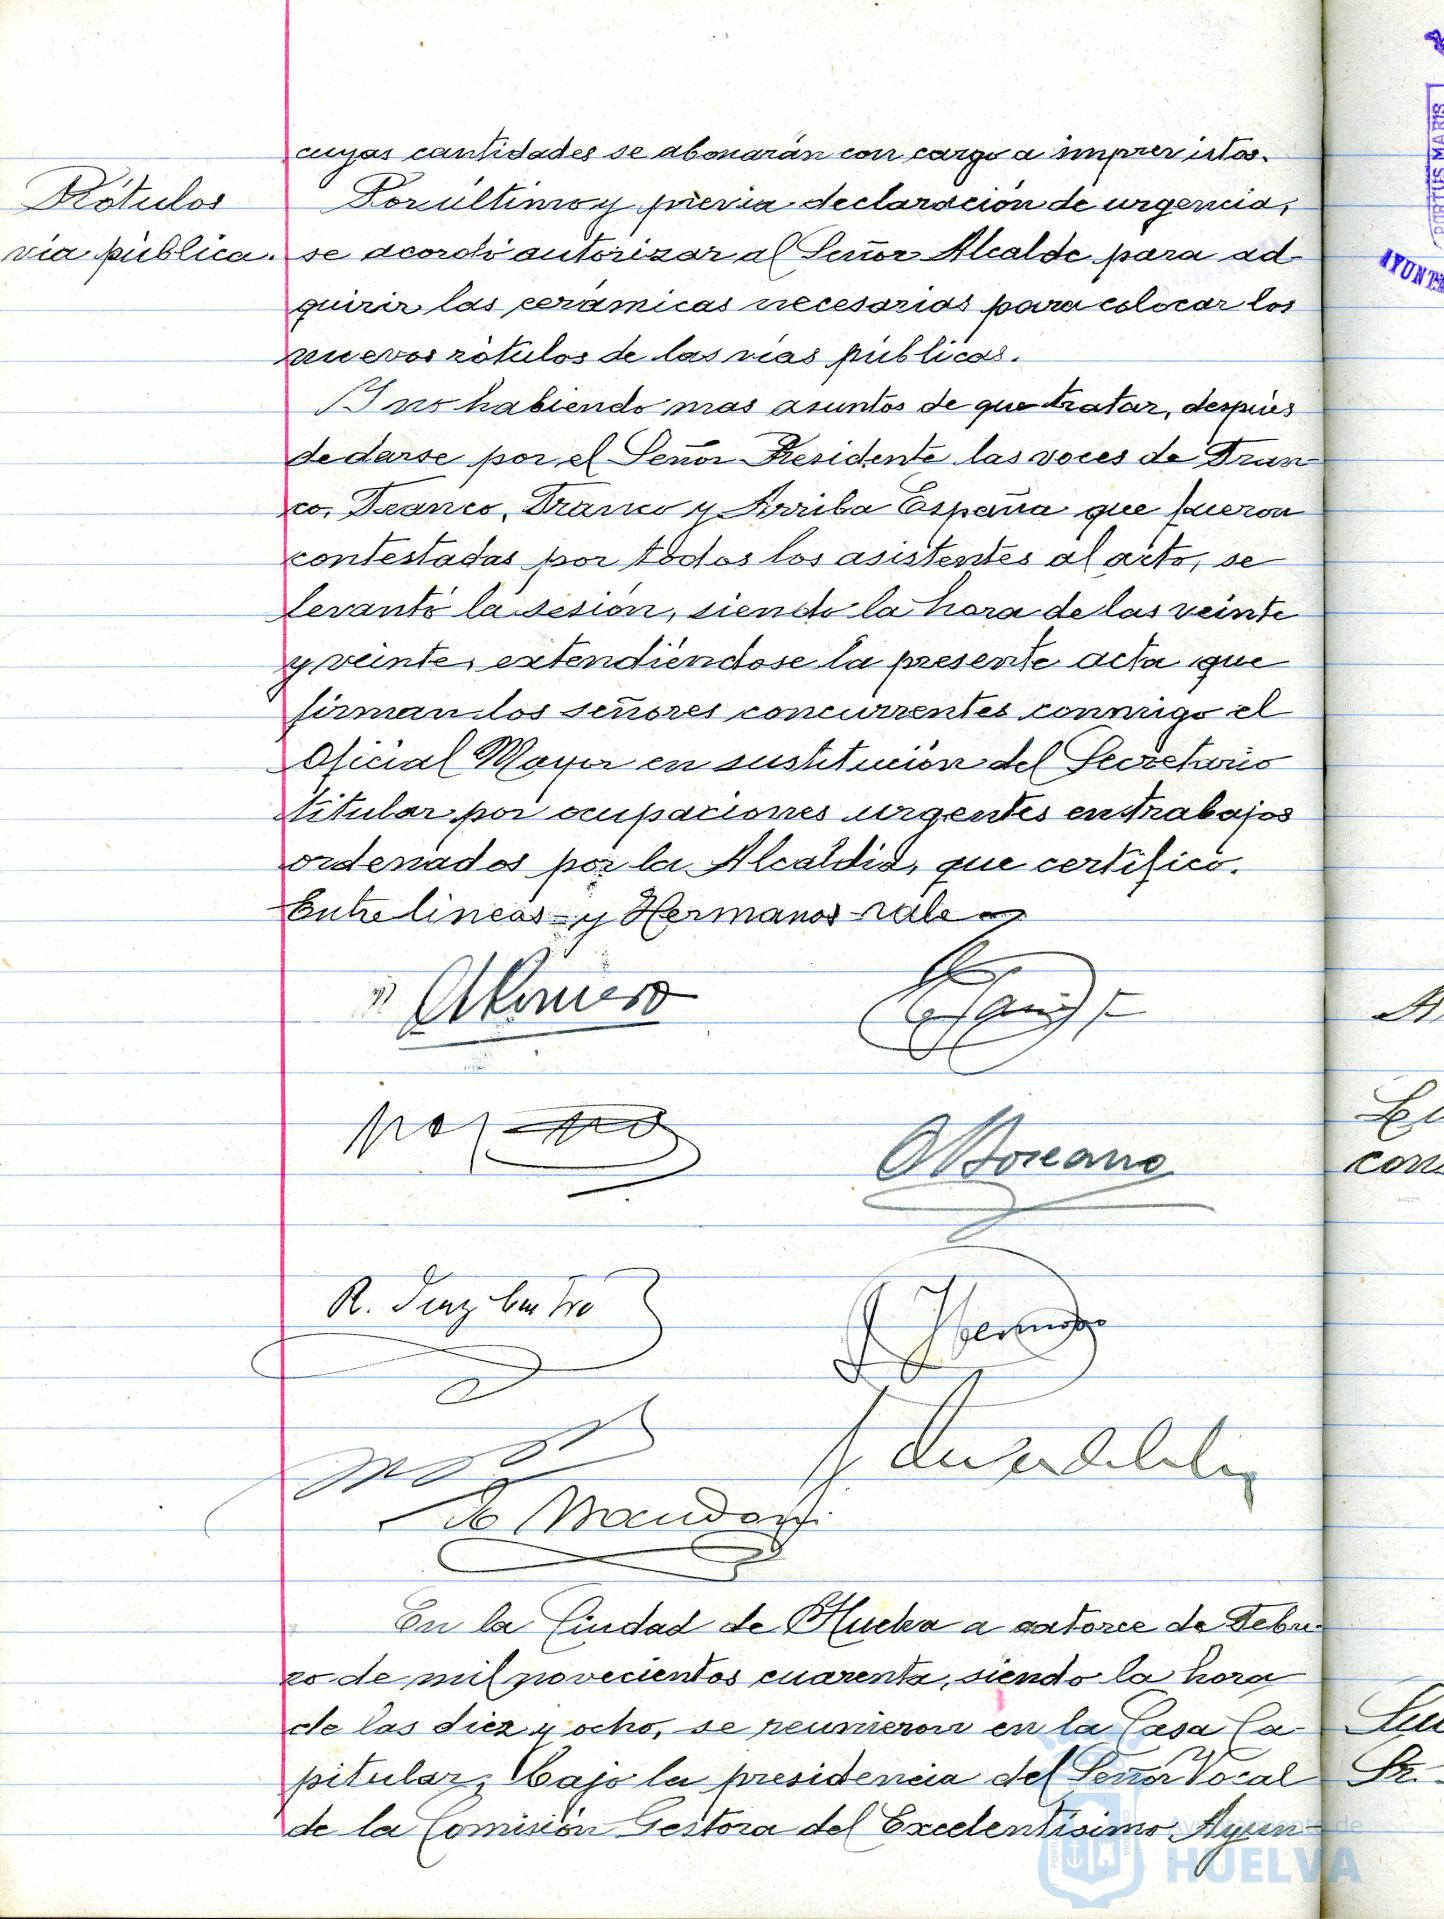 cuyas cantidades se abonarán con cargo a imprevistos.
Rótulos
vía pública.
Por último y previa declaración de urgencia,
se acordó autorizar al Señor Alcalde para ad-
quirir las cerámicas necesarias para colocar los
nuevos rótulos de las vías públicas.
Y no habiendo mas asuntos de que tratar, después
de darse por el Señor Presidente las voces de Fran-
co, Franco, Franco y Arriba España que fueron
contestadas por todos los asistentes al acto, se
levantó la sesión, siendo la hora de las veinte
y veinte, extendiéndose la presente acta que
firman los señores concurrentes conmigo el
Oficial Mayor en sustitución del Secretario
titular por ocupaciones urgentes en trabajos
ordenados por la Alcaldia, que certifico.
Entre lineas - y Hermanos - vale
R. Diaz
En la Ciudad de Huelva a catorce de Febre-
ro de mil novecientos cuarenta, siendo la hora
de las diez y ocho, se reunieron en la Casa Ca-
pitular, bajo la presidencia del Señor Vocal
de la Comisión Gestora del Excelentísimo Ayun-
Ayuntamiento de
HUELVA
PORTUS MARIS
AYUNTA